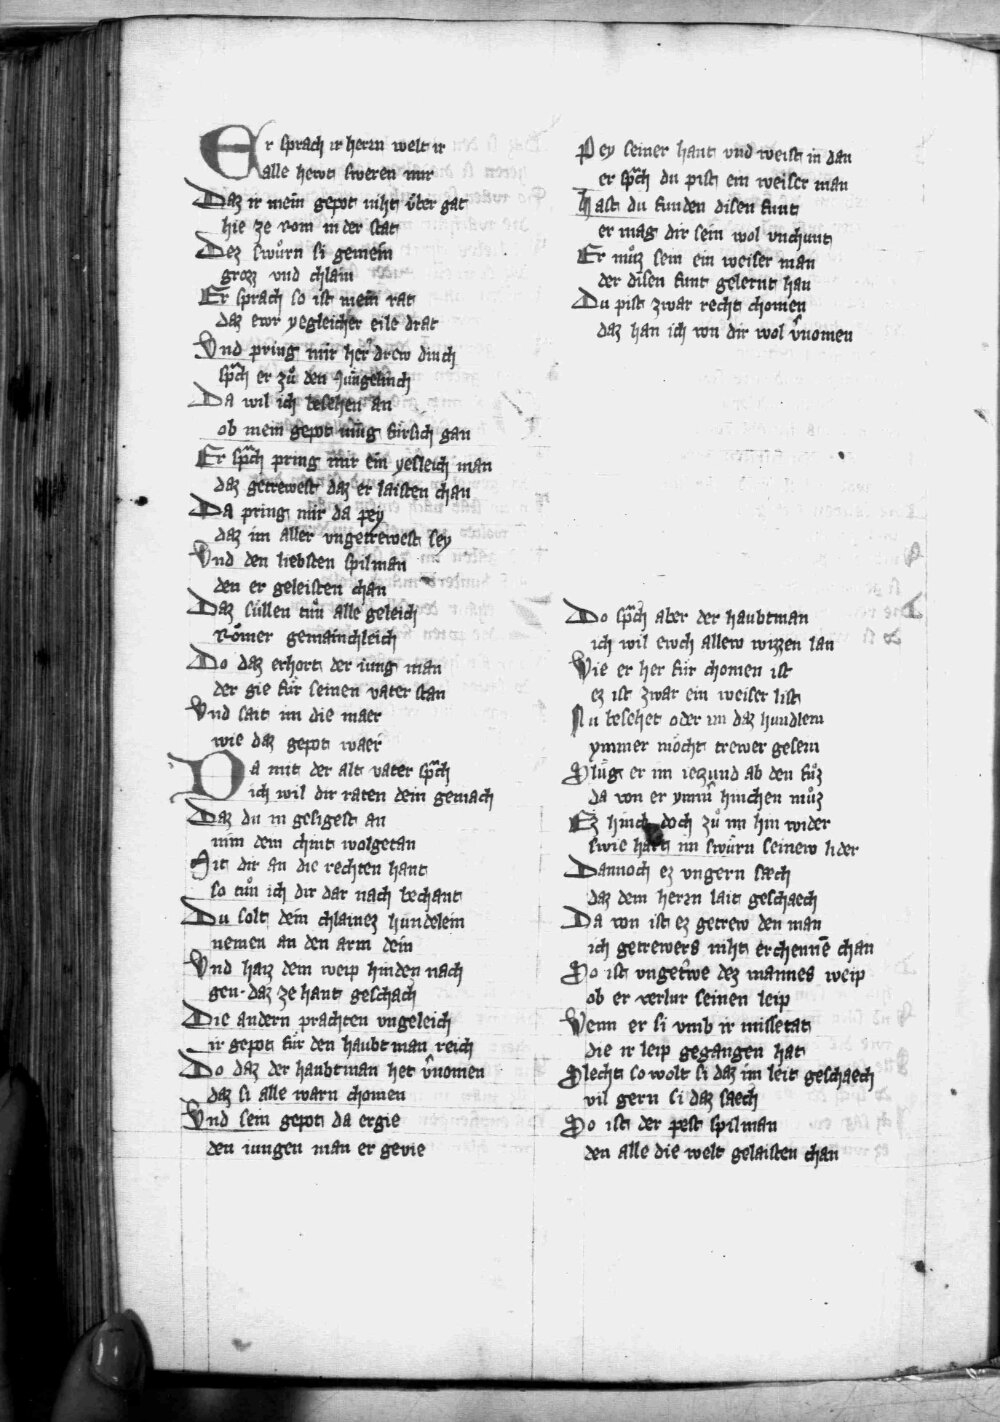 Er sprach ir herrn welt ir
alle hewt sweren mir
Daz ir mein gepot niht vber gat
hie ze rom in der stat
Dez swuͦrn si gemein
grozz vnd chlain
Er sprach so ist mein rat
daz ewr yegleicher eile drat
Vnd pring mir her drew dinch
spͣch er zuͦ den Jungelinch
Da wil ich besehen an
ob mein gepot muͤg fuͤrsich gan
Er spͣch pring mir ein yesleich man
daz getrewest daz er laisten chan
Da pring mir da pey
daz im aller vngetrewest sey
Vnd den liebsten spilman
den er geleisten chan
Daz suͤllen tuͦn alle geleich
Roͤmer gemainchleich
Do daz erhort der iung man
der gie fuͤr seinen vater stan
Vnd sait im die maer
wie daz gepot waer
Da mit der alt vater spͣch
ich wil dir raten dein gemach
Daz du in gesigest an
nim dein chint wolgetan
Mit dir an die rechten hant
so tuͦn ich dir dar nach bechant
Du solt dein chlainez hundelein
nemen an den arm dein
Vnd haiz dein weip hinden nach
gen. daz ze hant geschach
Die andern prachten vngeleich
ir gepot fuͤr den haubtman reich
Do daz der haubtman het v̂nomen
daz si alle warn chomen
Vnd sein gepot da ergie
den iungen man er gevie
Pey seiner hant vnd weist in dan
er spͣch du pist ein weiser man
Hast du funden disen funt
er mag dir sein wol vnchunt
Er muͦz sein ein weiser man
der disen funt gelernt han
Du pist zwar recht chomen
daz han ich von dir wol v̂nomen
Do spͣch aber der haubtman
ich wil ewch allew wizzen lan
Wie er her fuͤr chomen ist
ez ist zwar ein weiser list
Nu besehet oder im daz hundlein
ymmer moͤcht trewer gesein
Sluͤg er im iezund ab den fuͦz
da von er ymm̂ hinchen muͦz
Ez hinch doch zuͦ im hin wider
swie hart im swuͤrn seinew lider
Dannoch ez vngern saech
daz dem herrn lait geschaech
Da von ist ez getrew den man
ich getrewers niht erchennē chan
So ist vngetrwe dez mannes weip
ob er verlur seinen leip
Wenn er si vmb ir missetat
die ir leip gegangen hat
Slecht so wolt si daz im leit geschaech
vil gern si daz saech
So ist der pest spilman
den alle die welt gelaisten chan